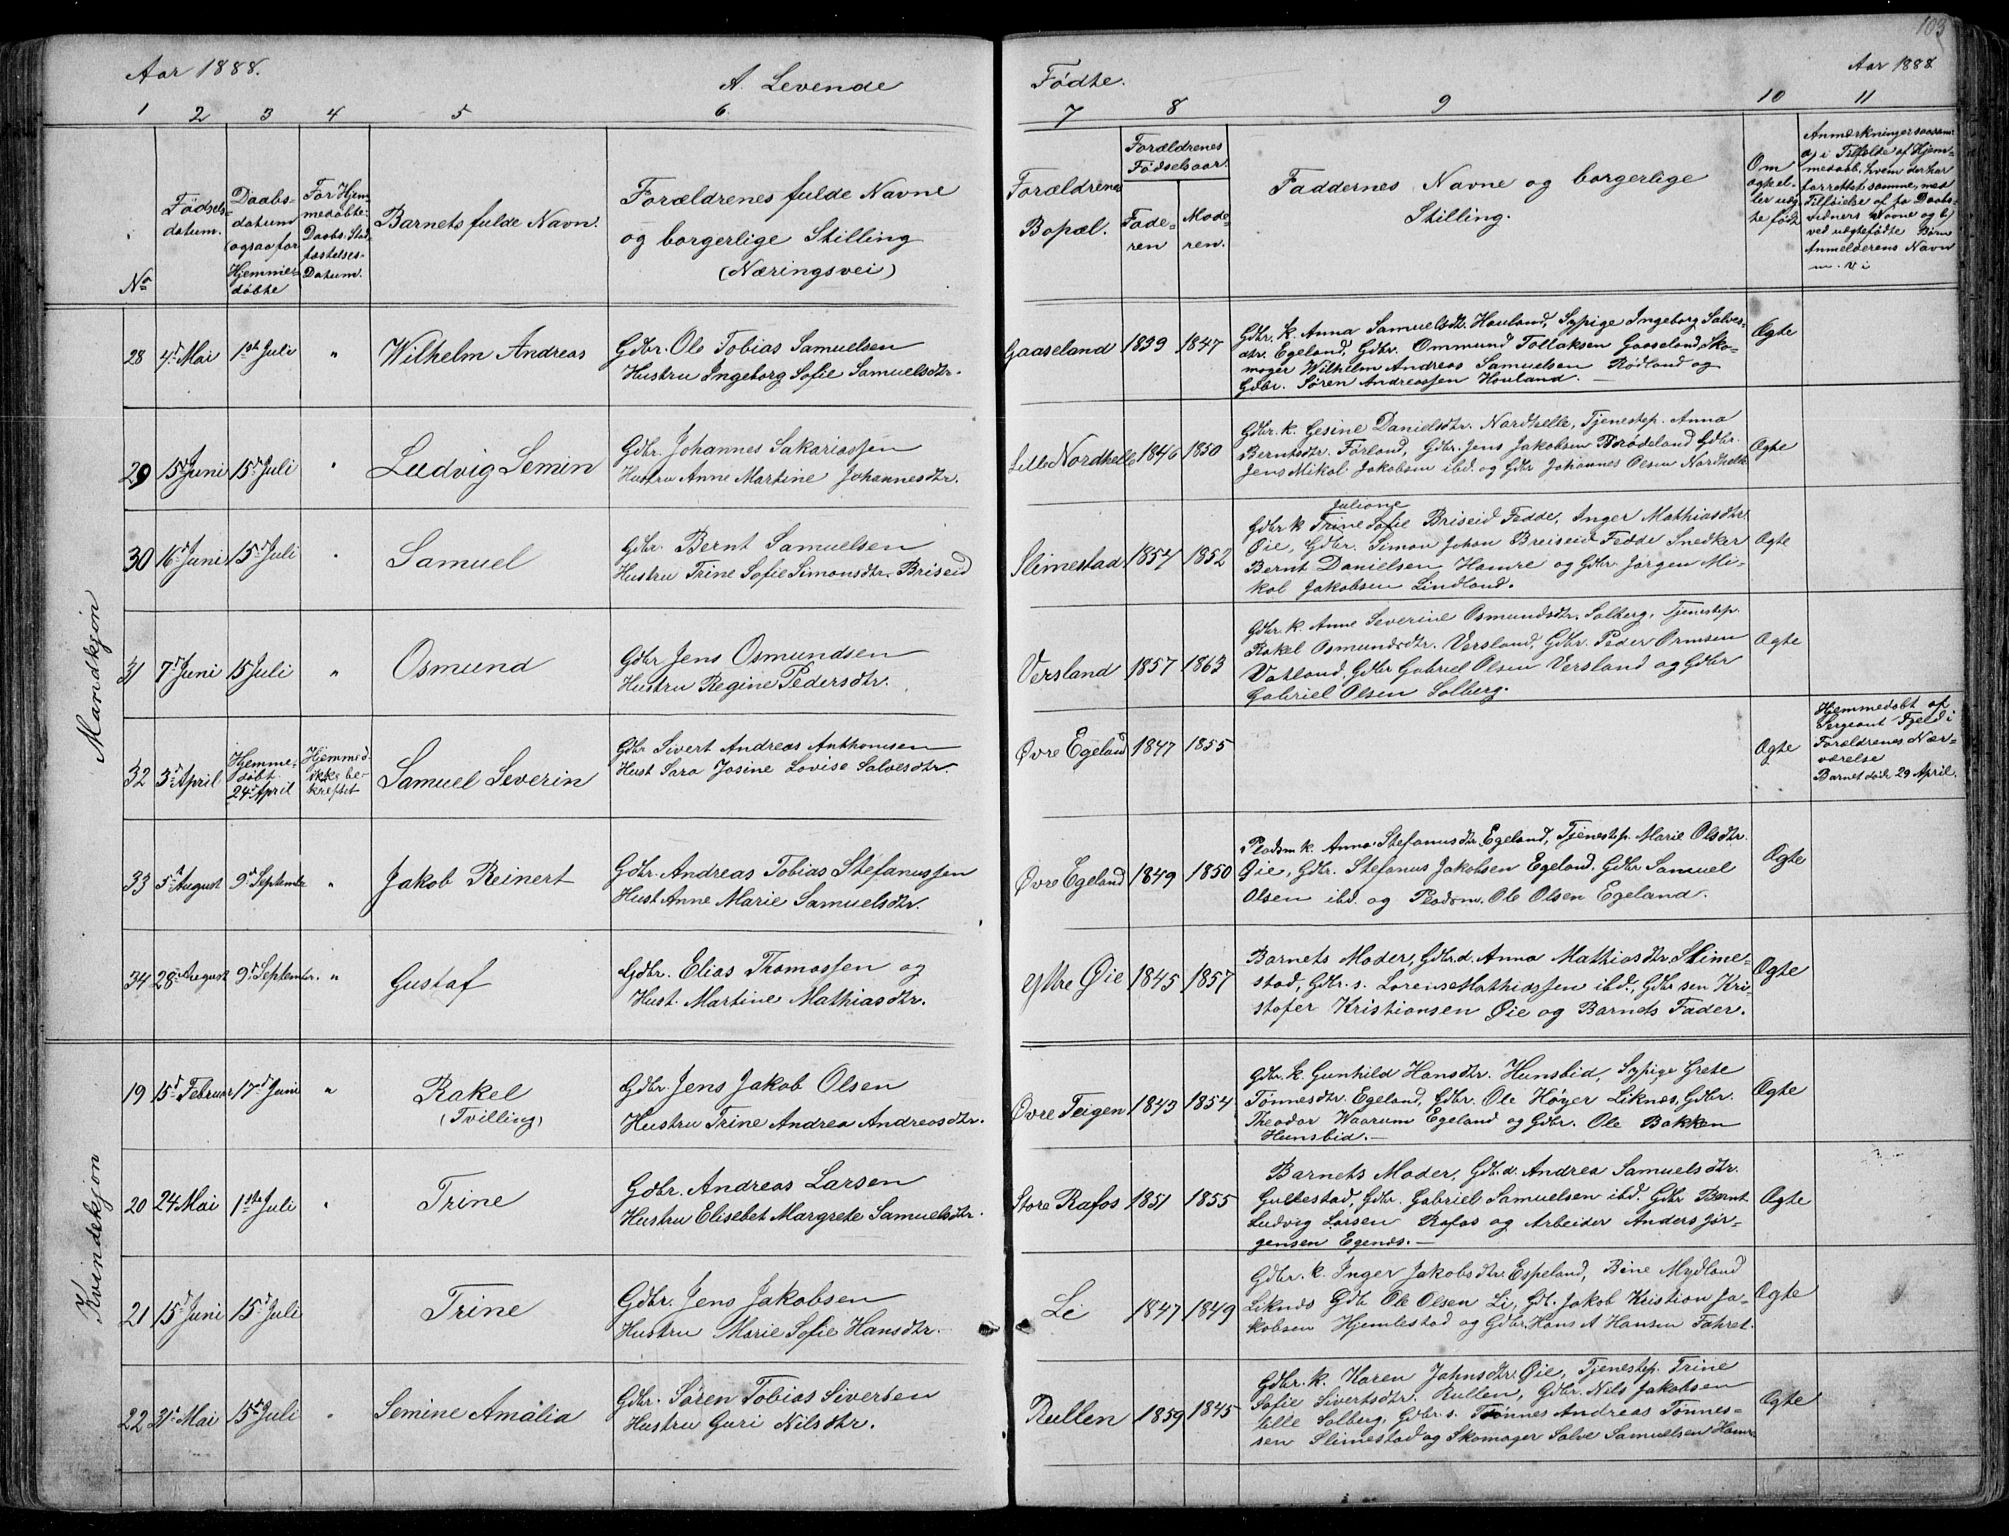 103
Aar 1888.
A. Levende
Fødte.
Aar 1888
1 2 3 4 5 6 7 8 9 10 11
No
Fødsels-
datum.
Daabs-
datum
(ogsaa for
Hjemme-
døbte
For Hjem-
medøbte:
Daabs Stad-
fæstelses-
Datum.
Barnets fulde Navn.
Forældrenes fulde Navne
og borgerlige Stilling
(Næringsvei)
Forældrenes
Bopæl.
Forældrenes
Fødselsaar.
Fade-
ren
Mode-
ren.
Faddernes Navne og borgerlige
Stilling.
Om
ægte el-
ler uæg-
te født
Anmærkninger saasom:
a) i Tilfælde af Hjem-
medaab, hvem der har
forrettet samme, med
Tilføielse af to Daabs-
vidners Navne og b)
ved uægtefødte Børn
Anmelderens Navn
m. v i
Mandkjøn
28 4d Mai 1ste Juli " Wilhelm Andreas
Gdbr. Ole Tobias Samuelsen
Hustru Ingeborg Sofie Samuelsdtr.
Gaaseland 1839 1847
Gdbr. k. Anna Samuelsdtr. Houland, Sypige Ingeborg Salves-
dtr. Egeland, Gdbr. Ommund Tollaksen Gaaseland, Sko-
mager Wilhelm Andreas Samuelsen Rødland og
Gdbr. Søren Andreassen Houland. —
Ægte
29 15d Juni 15d Juli " Ludvig Semin
Gdbr. Johannes Sakariassen
Hustru Anne Martine Johannesdtr.
Lille Nordhelle 1846 1850
Gdbr. k. Gesine Danielsdtr. Nordhelle, Tjenestep. Anna
Berntsdtr. Førland, Gdbr. Jens Jakobsen Brødeland Gdbr.
Jens Mikal Jakobsen ibd. og Gdbr Johannes Olsen Nordhelle
Ægte
30 16d Juni 15d Juli " Samuel
Gdbr. Bernt Samuelsen
Hustru Trine Sofie Simonsdtr. Briseid
Slimestad 1854 1852
Juliane
Gdbr k Trine Sofie Briseid Fedde, Inger Mathiasdtr.
Øie, Gdbr. Simon Johan Breiseid Fedde Snedker
Bernt Danielsen Hamre og Gdbr Jørgen Mi-
kal Jakobsen Lindland.
Ægte
31 7d Juni 15 Juli " Osmund
Gdbr Jens Osmundsen
Hustru Regine Pedersdtr.
Versland 1857 1863
Gdbr. k. Anne Severine Osmundsdtr. Solberg, Tjenestep.
Rakel Osmundsdtr. Versland, Gdbr. Peder Ormsen
Vatland, Gdbr Gabriel Olsen Versland og Gdbr
Gabriel Olsen Solberg.
Ægte
32 3d April
Hjemme-
døbt
24d April
Hjemmed
ikke be-
kræftet
Samuel Severin
Gdbr Sivert Andreas Anthonisen
Hust Sara Josine Lovise Salvesdtr.
Øvre Egeland 1847 1855
Ægte
Hjemmedøbt af
Sergeant Fjeld i
Forældrenes Nær-
værelse
Barnet døde 29 April.
33 5d August 9d September " Jakob Reinert
Gdbr. Andreas Tobias Stefanussen
Hust Anne Marie Samuelsdtr.
Øvre Egeland 1849 1850
Pladsm k. Anna Stefanusdtr Egeland, Tjenestep. Marie Olsdtr.
Øie, Gdbr. Stefanus Jakobsen Egeland. Gdbr Samuel
Olsen ibd. og Pladsm. Ole Olsen Egeland.
Ægte
34 28 August 9d September. " Gustaf
Gdbr. Elias Thomassen og
Hust. Martine Mathiasdtr.
Ytre Øie 1845 1857
Barnets Moder, Gdbr.d. Anna Mathiasdtr Slime-
stad, Gdbr. s. Lorens Mathiassen ibd., Gdbr søn Kri-
stofer Kristiansen Øie og Barnets Fader.
Ægte
Kvindekjøn
19 15d Februar 17d Juni " Rakel
(Tvilling)
Gdbr. Jens Jakob Olsen
Hustru Trine Andrea Andreasdtr.
Øvre Teigen 1843 1854
Gdbr. k. Gunhild Hansdtr. Hunsbid, Sypige Grete
Tønnesdtr. Egeland, Gdbr. Ole Høyer Liknæs, Gdbr.
Theodor Waarum Egeland og Gdbr. Ole Bakken
Hunsbid. —
Ægte
20 24 Mai 1ste Juli " Trine
Gdbr. Andreas Larsen
Hustru Elisebet Margrete Samuelsdtr.
Store Rafos 1851 1855
Barnets Moder, Gdb. d. Andrea Samuelsdtr.
Gullestad, Gdbr. Gabriel Samuelsen ibd. Gdbr Bernt
Ludvig Larsen Rafos og Arbeider Anders Jør-
gensen Egenæs. —
Ægte
21 15d Juni 15d Juli Trine
Gdbr. Jens Jakobsen
Hustru Marie Sofie Hansdtr.
Li 1847 1849
Gdbr. k. Inger Jakobsdtr. Espeland, Bine Mydland
Liknæs Gdb. Ole Olsen Li, Gdb. Jakob Kristian Ja-
kobsen Hjemlestad og Gdbr. Hans A Hansen Fahret.
Ægte
22 21d Mai 15d Juli " Semine Amalia
Gdbr. Søren Tobias Sivertsen
Hustru Guri Nilsdtr.
Rullen 1859 1845
Gdbr. k. Karen Jahnsdtr. Øie, Tjenestep. Trine
Sofie Sivertsdtr. Rullen, Gdbr. Nils Jakobsen
lille Solberg, Gdbr. s. Tønnes Andreas Tønnes-
sen Slimestad og Skomager Salve Samuelsen Hamre
Ægte